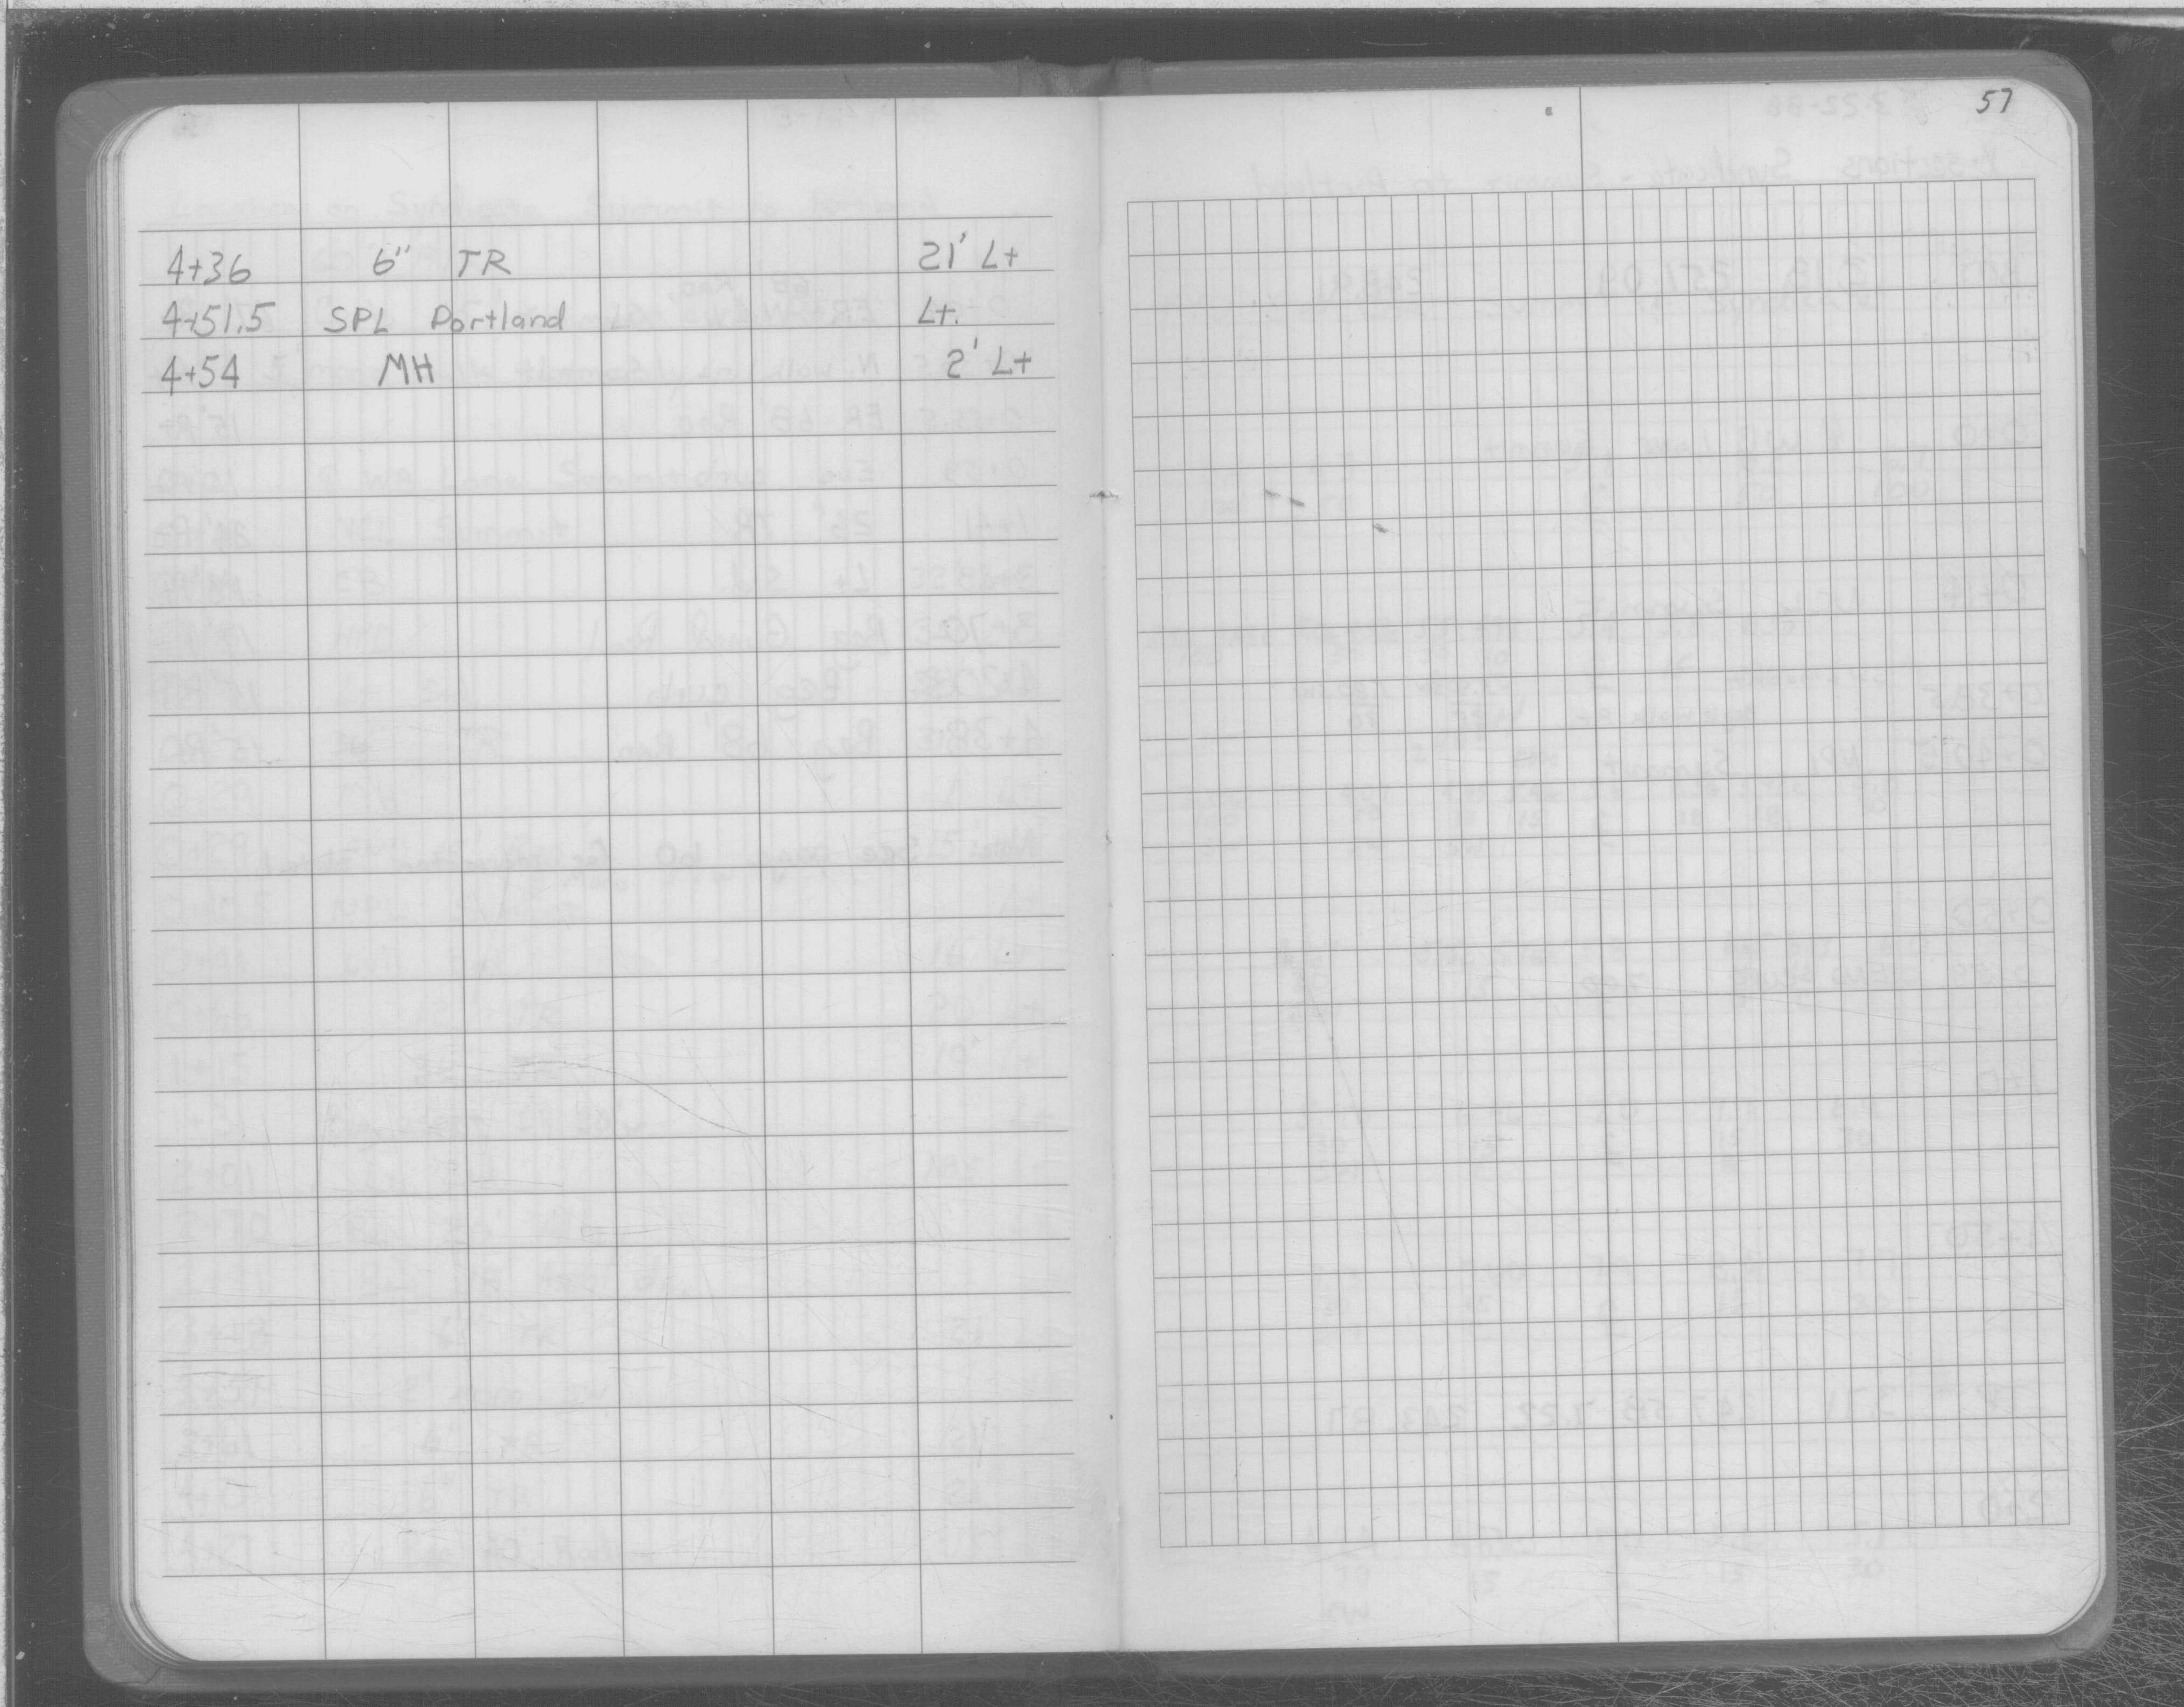 57
4+36 6" TR 21' Lt
4+51.5 SPL Portland Lt.
4+54 MH 2' Lt